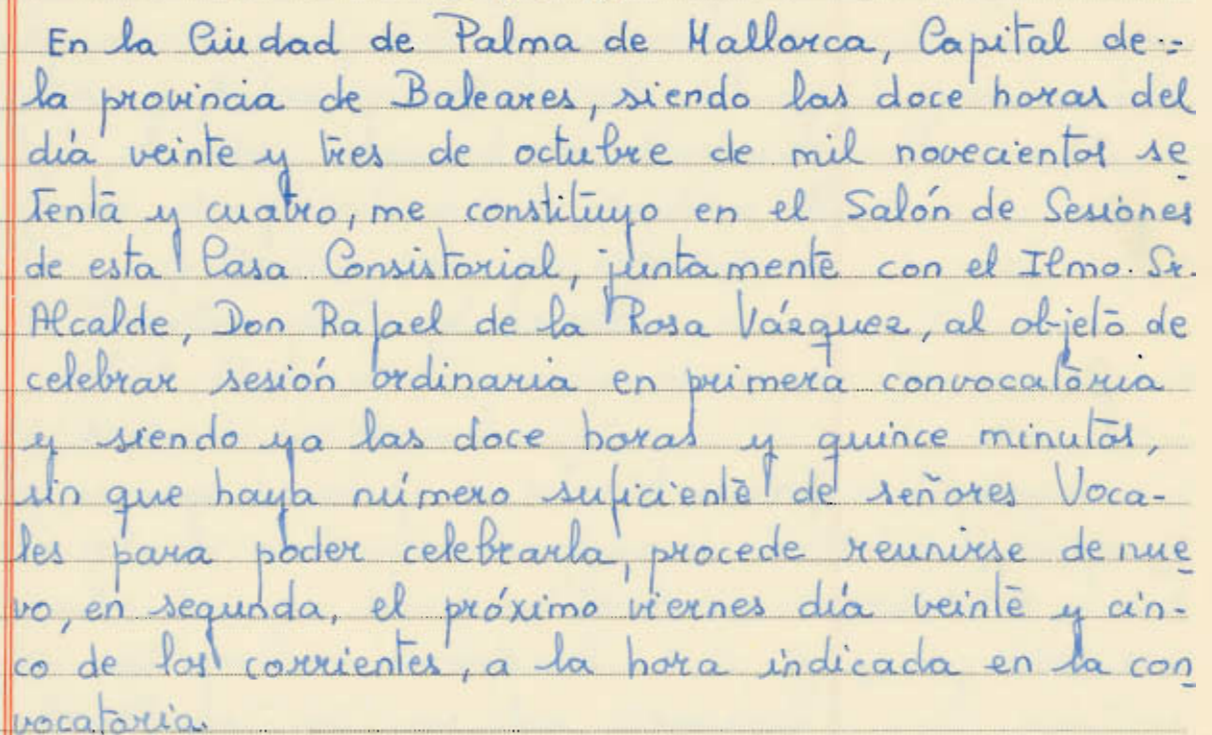 En la Ciudad de Palma de Mallorca, Capital de :-
la provincia de Baleares, siendo las doce horas del
día veinte y tres de octubre de mil novecientos se
tenta y cuatro, me constituyo en el Salón de Sesiones
de esta Casa Consistorial, juntamente con el Ilmo. Sr.
Alcalde, Don Rafael de la Rosa Vázquez, al objeto de
celebrar sesión ordinaria en primera convocatoria
y siendo ya las doce horas y quince minutos,
sin que haya número suficiente de señores Voca-
les para poder celebrarla, procede reunirse de nue
vo, en segunda, el próximo viernes día veinte y cin-
co de los corrientes, a la hora indicada en la con
vocatoria.